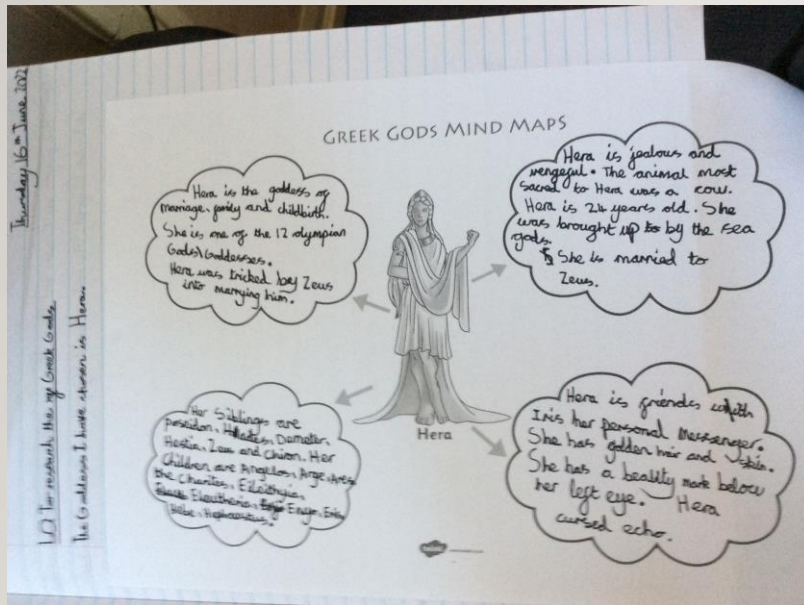 Thursday 16th June 2022
LO To research the my Greek Gods.
The Goddess I have chosen is Hera.
GREEK GODS MIND MAPS
Hera is the goddess of
marriage, family and childbirth.
She is one of the 12 olympian
Gods\Goddesses.
Hera was tricked by Zeus
into marrying him.
Hera is jealous and
vengeful. The animal most
sacred to Hera was a cow.
Hera is 24 years old. She
was brought up to by the sea
gods.
She is married to
Zeus.
Her Siblings are
Poseidon, Hades, Demeter,
Hestia, Zeus and Chiron. Her
Children are Angelos, Arge, Ares
the Charites, Eileithyia,
Eleutheria, Enyo, Eris,
Hebe, Hephaestus.
Hera is friends with
Iris her personal messenger.
She has golden hair and skin.
She has a beauty mark below
her left eye. Hera
cursed echo.
Hera